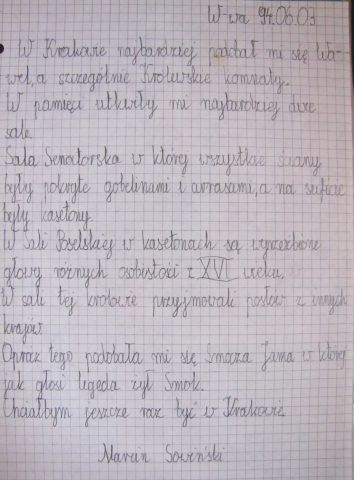 W wa 94.06.03
W Krakowie najbardziej podobał mi się Wa-
wel, a szczególnie Królewskie komnaty.
W pamięci utkwiły mi najbardziej dwie
sale.
Sala Senatorska w który wszystkie ściany
były pokryte gobelinami i arrasami, a na suficie
były kasetony.
W sali Poselskiej w kasetonach są wyrzeźbione
głowy różnych osobistości z XVI wieku.
W sali tej królowie przyjmowali posłów z innych
krajów
Oprócz tego podobała mi się Smocza Jama w której
jak głosi legęda żył Smok.
Chciałbym jeszcze raz być w Krakowie.
Marcin Sowiński